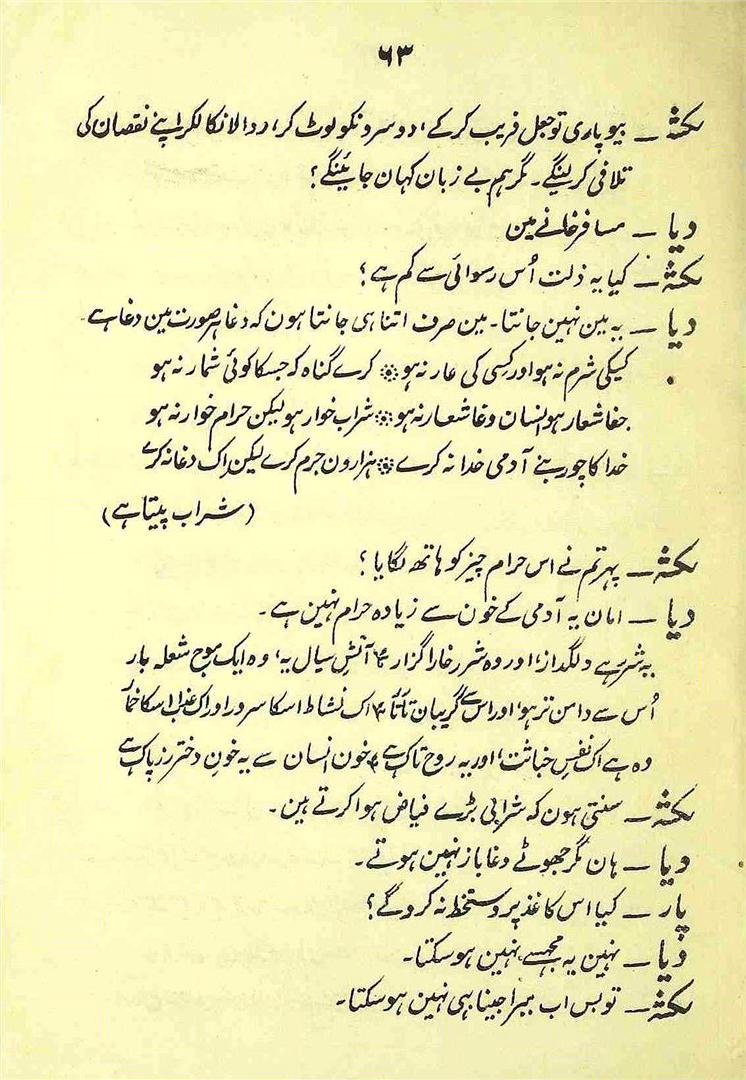 ۶۳
لکشـ ــ بیوپاری تو جعل فریب کرکے، دوسرونکو لوٹ کر، ردالا نکالکر اپنے نقصان کی
تلافی کرلینگے۔ مگر ہم بے زبان کہان جائینگے؟
دیا ــ مسافر خانے مین
لکشـ ــ کیا یہ ذلت اُس رسوائی سے کم ہے؟
دیا ــ یہ مین نہین جانتا۔ مین صرف اتنا ہی جانتا ہون کہ دغا ہر صورت مین دغا ہے۔
کسیکی شرم نہ ہو اور کسی کی عار نہ ہو ٭ کرے گناہ کہ جسکا کوئی شمار نہ ہو
جفا شعار ہو انسان دغا شعار نہ ہو ٭ شراب خوار ہو لیکن حرام خوار نہ ہو
خدا کا چور بنے آدمی خدا نہ کرے ٭ ہزارون جرم کرے لیکن اِک دغا نہ کرے
(شراب پیتا ہے)
لکشـ ــ پہر تم نے اس حرام چیز کو ہاتھ لگایا؟
دیا ــ امان یہ آدمی کے خون سے زیادہ حرام نہین ہے۔
یہ شرر ہے دلگداز، اور وہ شرر خارا گزار ؍ آتشِ سیال یہ، وہ ایک موج شعلہ بار
اُس سے دامن تر ہو، اور اس سے گریبان تار تار ؍ اک نشاط اسکا سرور اور اک عذاب اسکا خمار
وہ ہے اک نفسِ خباثت، اور یہ روح تاک ہے ؍ خون انسان سے یہ خونِ دختر رز پاک ہے
لکشـ ــ سنتی ہون کہ شرابی بڑے فیاض ہوا کرتے ہین۔
دیا ــ ہان مگر جھوٹے دغاباز نہین ہوتے۔
پار ــ کیا اس کاغذ پر دستخط نہ کروگے؟
دیا ــ نہین یہ مجھسے نہین ہوسکتا۔
لکشـ ــ تو بس اب میرا جینا ہی نہین ہوسکتا۔